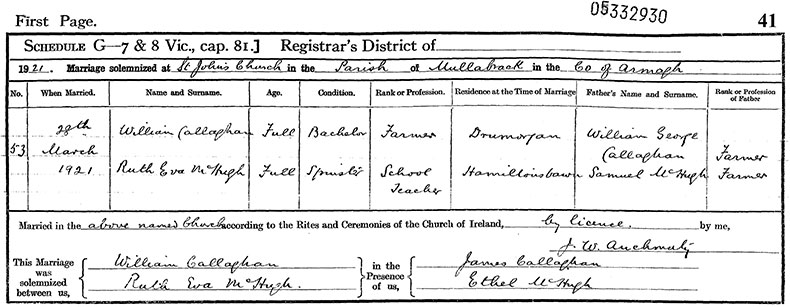 First Page. 05332930 41
SCHEDULE G—7 & 8 Vic., cap. 81.] Registrar's District of
1921. Marriage solemnized at St John's Church in the Parish of Mullabrack in the Co of Armagh
No. When Married. Name and Surname. Age. Condition. Rank or Profession. Residence at the Time of Marriage Father's Name and Surname. Rank or Profession of Father
53 28th March 1921 William Callaghan Full Bachelor Farmer Drumorgan William George Callaghan Farmer
Ruth Eva McHugh Full Spinster School Teacher Hamiltonsbawn Samuel McHugh Farmer
Married in the above named Church according to the Rites and Ceremonies of the Church of Ireland, by licence. by me,
J. W. Auchmuty
This Marriage was solemnized between us, William Callaghan in the Presence of us, James Callaghan
Ruth Eva McHugh. Ethel McHugh